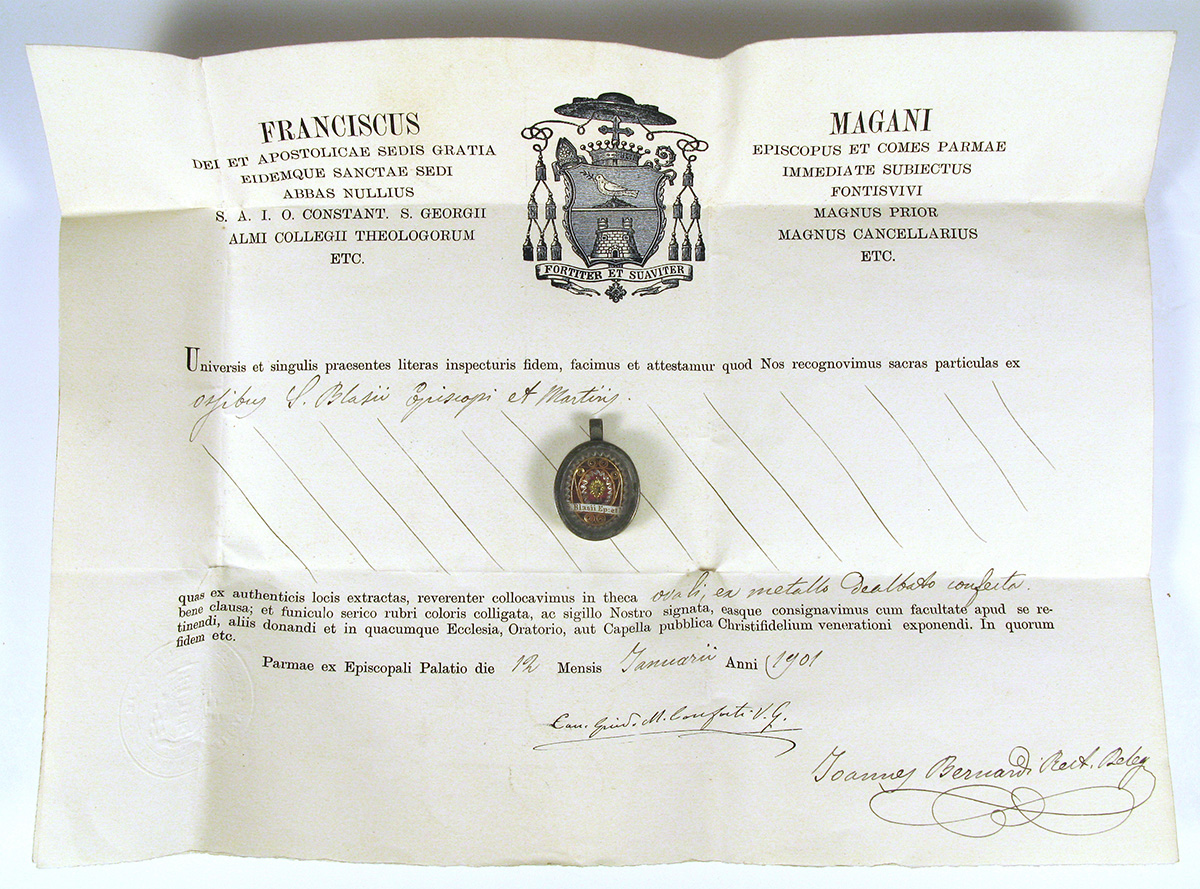 FRANCISCUS MAGANI
DEI ET APOSTOLICAE SEDIS GRATIA EPISCOPUS ET COMES PARMAE
EIDEMQUE SANCTAE SEDI IMMEDIATE SUBIECTUS
ABBAS NULLIUS FONTISVIVI
S. A. I. O. CONSTANT. S. GEORGII MAGNUS PRIOR
ALMI COLLEGII THEOLOGORUM MAGNUS CANCELLARIUS
ETC. ETC.
FORTITER ET SUAVITER
Universis et singulis praesentes literas inspecturis fidem, facimus et attestamur quod Nos recognovimus sacras particulas ex
ossibus S. Blasii Episcopi et Martiris.
Blasii Ep. et
quas ex authenticis locis extractas, reverenter collocavimus in theca ovali, ex metallo dealbato confecta
bene clausa; et funiculo serico rubri coloris colligata, ac sigillo Nostro signata, easque consignavimus cum facultate apud se re-
tinendi, aliis donandi et in quacumque Ecclesia, Oratorio, aut Capella pubblica Christifidelium venerationi exponendi. In quorum
fidem etc.
Parmae ex Episcopali Palatio die 12 Mensis Januarii Anni 1901
Can. Guido M. Conforti V. G.
Joannes Bernardi Rect. Deleg